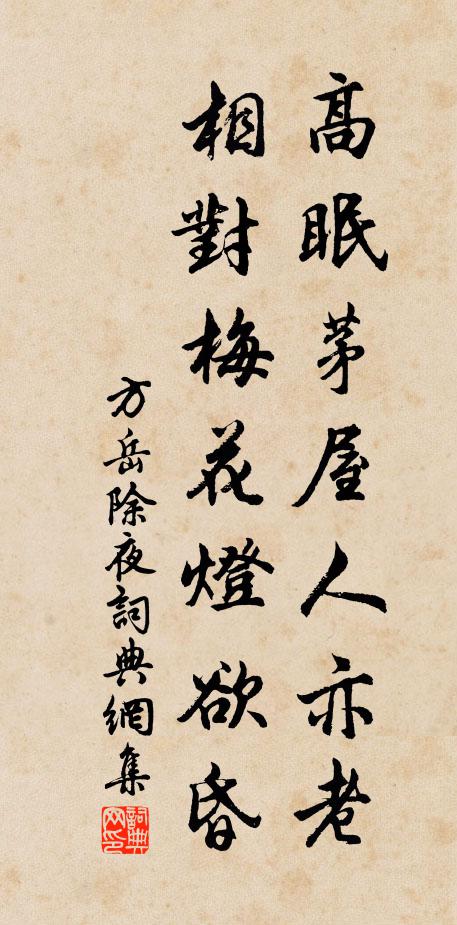 高眠茅屋人亦老
相對梅花燈欲昏
方岳除夜詞典網集
詞典网印